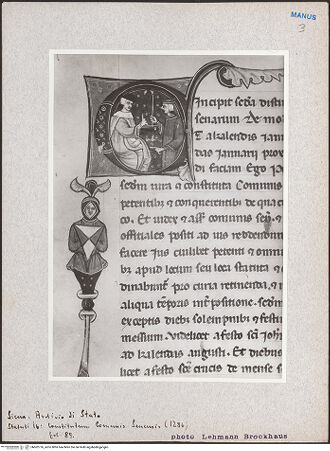 MANUS
3
Incipit scda disti
senarum De mo
T a kalendis iann
das Januarij prox
di faciam Ego p
sedm iura & constituta Comunis
petentibus & conquerentibus de qua
co. Et iudex & ass comunis sen.
officiales positi ad ius reddendum
facere ius cuilibet petenti &
bi apud locum seu loca statuta &
dinabunt pro curia retinenda,
aliqua temporis inter positione. sedm
exceptis diebus solempnibus & festi
messium. Videlicet a festo sci Joh
ad kalendas augusti. Et diebus
licet a festo sce crucis de mense
Siena. Archivio di Stato
Statuti 16: Constitutum Comunis Senensis (1286)
fol. 89.
photo Lehmann Brockhaus